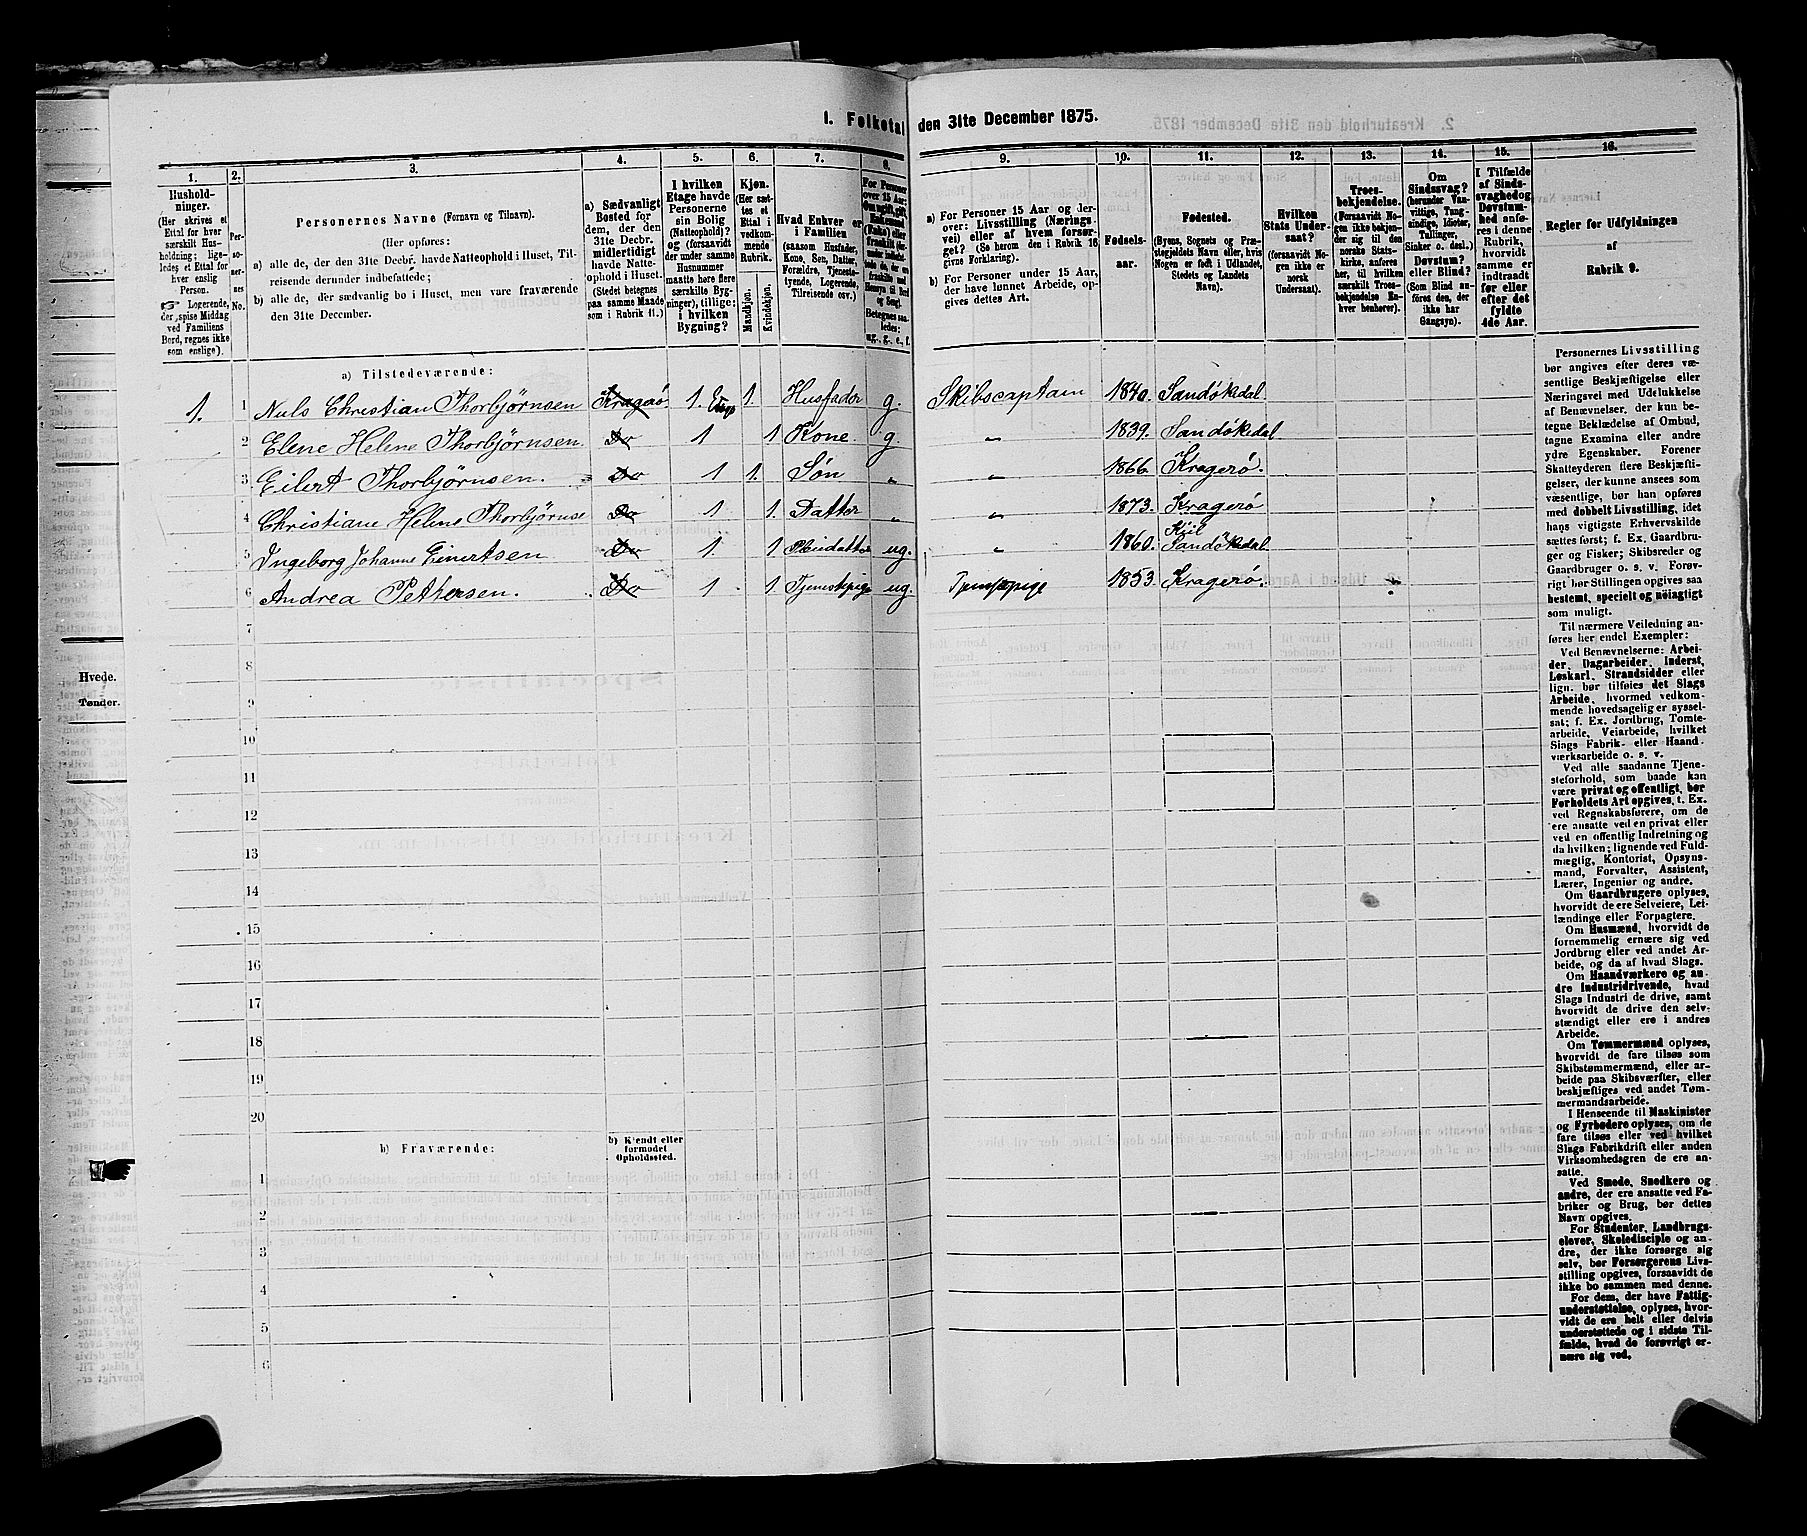 1. Folketal den 31te December 1875.
1.
2.
3.
4.
5.
6.
7.
8.
9.
10.
11.
12.
13.
14.
15.
16.
Hushold-
ninger.
(Her skrives et
Ettal for hver
særskilt Hus-
holdning; lige-
ledes et Ettal for
hver enslig
Person.
☞ Logerende,
der spise Middag
ved Familiens
Bord, regnes ikke
som enslige).
Per-
so-
ner-
nes
No.
Personernes Navne (Fornavn og Tilnavn).
(Her opføres:
a) alle de, der den 31te Decbr. havde Natteophold i Huset, Til-
reisende derunder indbefattede;
b) alle de, der sædvanlig bo i Huset, men vare fraværende
den 31te December.
a) Sædvanligt
Bosted for
dem, der den
31te Decbr.
midlertidigt
havde Natte-
ophold i Huset.
(Stedet betegnes
paa samme Maade
som i Rubrik 11.)
I hvilken
Etage havde
Personerne
sin Bolig
(Natteophold)?
og (forsaavidt
der under samme
Husnummer
maatte høre flere
særskilte Byg-
ninger), tillige:
i hvilken
Bygning?
Kjøn.
(Her sæt-
tes et
Ettal i
vedkom-
mende
Rubrik.
Mandkjøn.
Kvindekjøn.
Hvad Enhver er
i Familien
(saasom Husfader,
Kone, Søn, Datter,
Forældre, Tjeneste-
tyende, Logerende,
Tilreisende osv.)
For Personer
over 15 Aar:
Om ugift, gift,
Enkemand
(Enke) eller
fraskilt
Betegnes saa-
ledes:
ug., g., e., f.
a) For Personer 15 Aar og der-
over: Livsstilling (Nærings-
vei) eller af hvem forsør-
get? (Se herom den i Rubrik 16
givne Forklaring).
b) For Personer under 15 Aar,
der have lønnet Arbeide, op-
gives dettes Art.
Fødsels-
aar.
Fødested.
(Byens, Sognets og Præ-
stegjeldets Navn eller, hvis
Nogen er født i Udlandet,
Stedets og Landets
Navn).
Hvilken
Stats Under-
saat?
(forsaavidt No-
gen ikke er
norsk
Undersaat).
Troes-
bekjendelse.
(Forsaavidt No-
gen ikke bekjen-
der sig til den
norske Stats-
kirke, anføres
her, til hvilken
særskilt Troes-
bekjendelse En-
hver henhører).
Om
Sindssvag?
(herunder Van-
vittige, Tung-
sindige, Idioter,
Tullinger,
Sinker o. desl.)
Døvstum?
eller Blind?
(Som Blind an-
føres den, der
ikke har
Gangsyn).
I Tilfælde
af Sinds-
svaghed og
Døvstum-
hed anfø-
res i denne
Rubrik,
hvorvidt
samme er
indtraadt
før eller
efter det
fyldte
4de Aar.
Regler for Udfyldningen
af
Rubrik 9.
a) Tilstedeværende:
1. 1 Nils Christian Thorbjørnsen Kragerø. 1. Etage 1. Husfader g. Skibscaptain 1840. Sandøkedal.
2 Elene Helene Thorbjørnsen. Do 1 1 Kone. g. „ 1839. Sandøkedal.
3 Eilert Thorbjørnsen. Do 1 1. Søn „ „ 1866. Kragerø.
4 Christiane Helene Thorbjørnse Do 1 1. Datter „ „ 1873. Kragerø
Kiil
5 Ingeborg Johanne Einertsen Do 1. 1 Pleiedatter ug. „ 1860. Sandøkedal.
6 Andrea Pettersen. Do 1 1. Tjenestepige ug. Tjenestepige 1853. Kragerø.
7
8
9
10
11
12
13
14
15
16
17
18
19
20
b) Fraværende:
b) Kjendt eller
formodet
Opholdssted.
1
2
3
4
5
6
Personernes Livsstilling
bør angives efter deres væ-
sentlige Beskjæftigelse eller
Næringsvei med Udelukkelse
af Benævnelser, der kun be-
tegne Beklædelse af Ombud,
tagne Examina eller andre
ydre Egenskaber. Forener
Skatteyderen flere Beskjæfti-
gelser, der kunne ansees som
væsentlige, bør han opføres
med dobbelt Livsstilling, idet
hans vigtigste Erhvervskilde
sættes først; f. Ex. Gaardbru-
ger og Fisker; Skibsreder og
Gaardbruger o. s. v. Forøv-
rigt bør Stillingen opgives saa
bestemt, specielt og nøiagtigt
som muligt.
Til nærmere Veiledning an-
føres her endel Exempler:
Ved Benævnelserne: Arbei-
der, Dagarbeider, Inderst,
Løskarl, Strandsidder eller
lign. bør tilføies det Slags
Arbeide, hvormed vedkom-
mende hovedsagelig er syssel-
sat; f. Ex. Jordbrug, Tomte-
arbeide, Veiarbeide, hvilket
Slags Fabrik- eller Haand-
værksarbeide o. s. v.
Ved alle saadanne Tjene-
steforhold, som baade kan
være privat og offentligt, bør
Forholdets Art opgives, t. Ex.
ved Regnskabsførere, om de
ere ansatte ved en privat eller
ved en offentlig Indretning og
da hvilken; lignende ved Fuld-
mægtig, Kontorist, Opsyns-
mand, Forvalter, Assistent,
Lærer, Ingeniør og andre.
Om Gaardbrugere oplyses,
hvorvidt de ere Selveiere, Lei-
lændinge eller Forpagtere.
Om Husmænd, hvorvidt de
fornemmelig ernære sig ved
Jordbrug eller ved andet Ar-
beide, og da af hvad Slags.
Om Haandværkere og an-
dre Industridrivende, hvad
Slags Industri de drive, samt
hvorvidt de drive den selv-
stændigt eller ere i andres
Arbeide.
Om Tømmermænd oplyses,
hvorvidt de fare tilsøs som
Skibstømmermænd, eller ar-
beide paa Skibsværfter, eller
beskjæftiges ved andet Tøm-
mermandsarbeide.
I Henseende til Maskinister
og Fyrbødere oplyses, om de
fare tilsøs eller ved hvilket
Slags Fabrikdrift eller anden
Virksomhedsgren de ere an-
satte.
Ved Smede, Snedkere og
andre, der ere ansatte ved Fa-
briker og Brug, bør dettes
Navn opgives.
For Studenter, Landbrugs-
elever, Skoledisciple og an-
dre, der ikke forsørge sig
selv, bør Forsørgerens Livs-
stilling opgives, forsaavidt de
ikke bo sammen med denne.
For dem, der have Fattig-
understøttelse, oplyses, hvor-
vidt de ere helt eller delvis
understøttede og i sidste Til-
fælde, hvad de forøvrigt er-
nære sig ved.
Hvede.
Tønder.